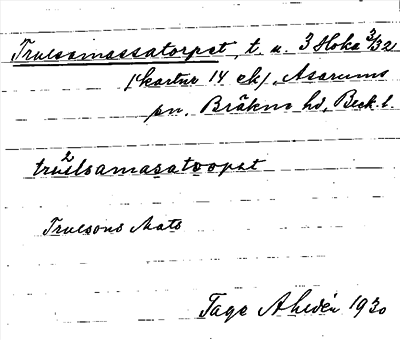 Truesamassatorpet, t. u. 3 Hoka 3/32
(kartur 14 ek), Asarums
sn. Bräkne hd, Bleck. l.
truelsamasatorpet
Truesons Mats
Tage Ahldén 1930